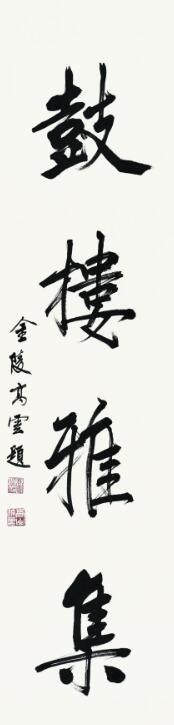 鼓樓雅集
金陵高雲題